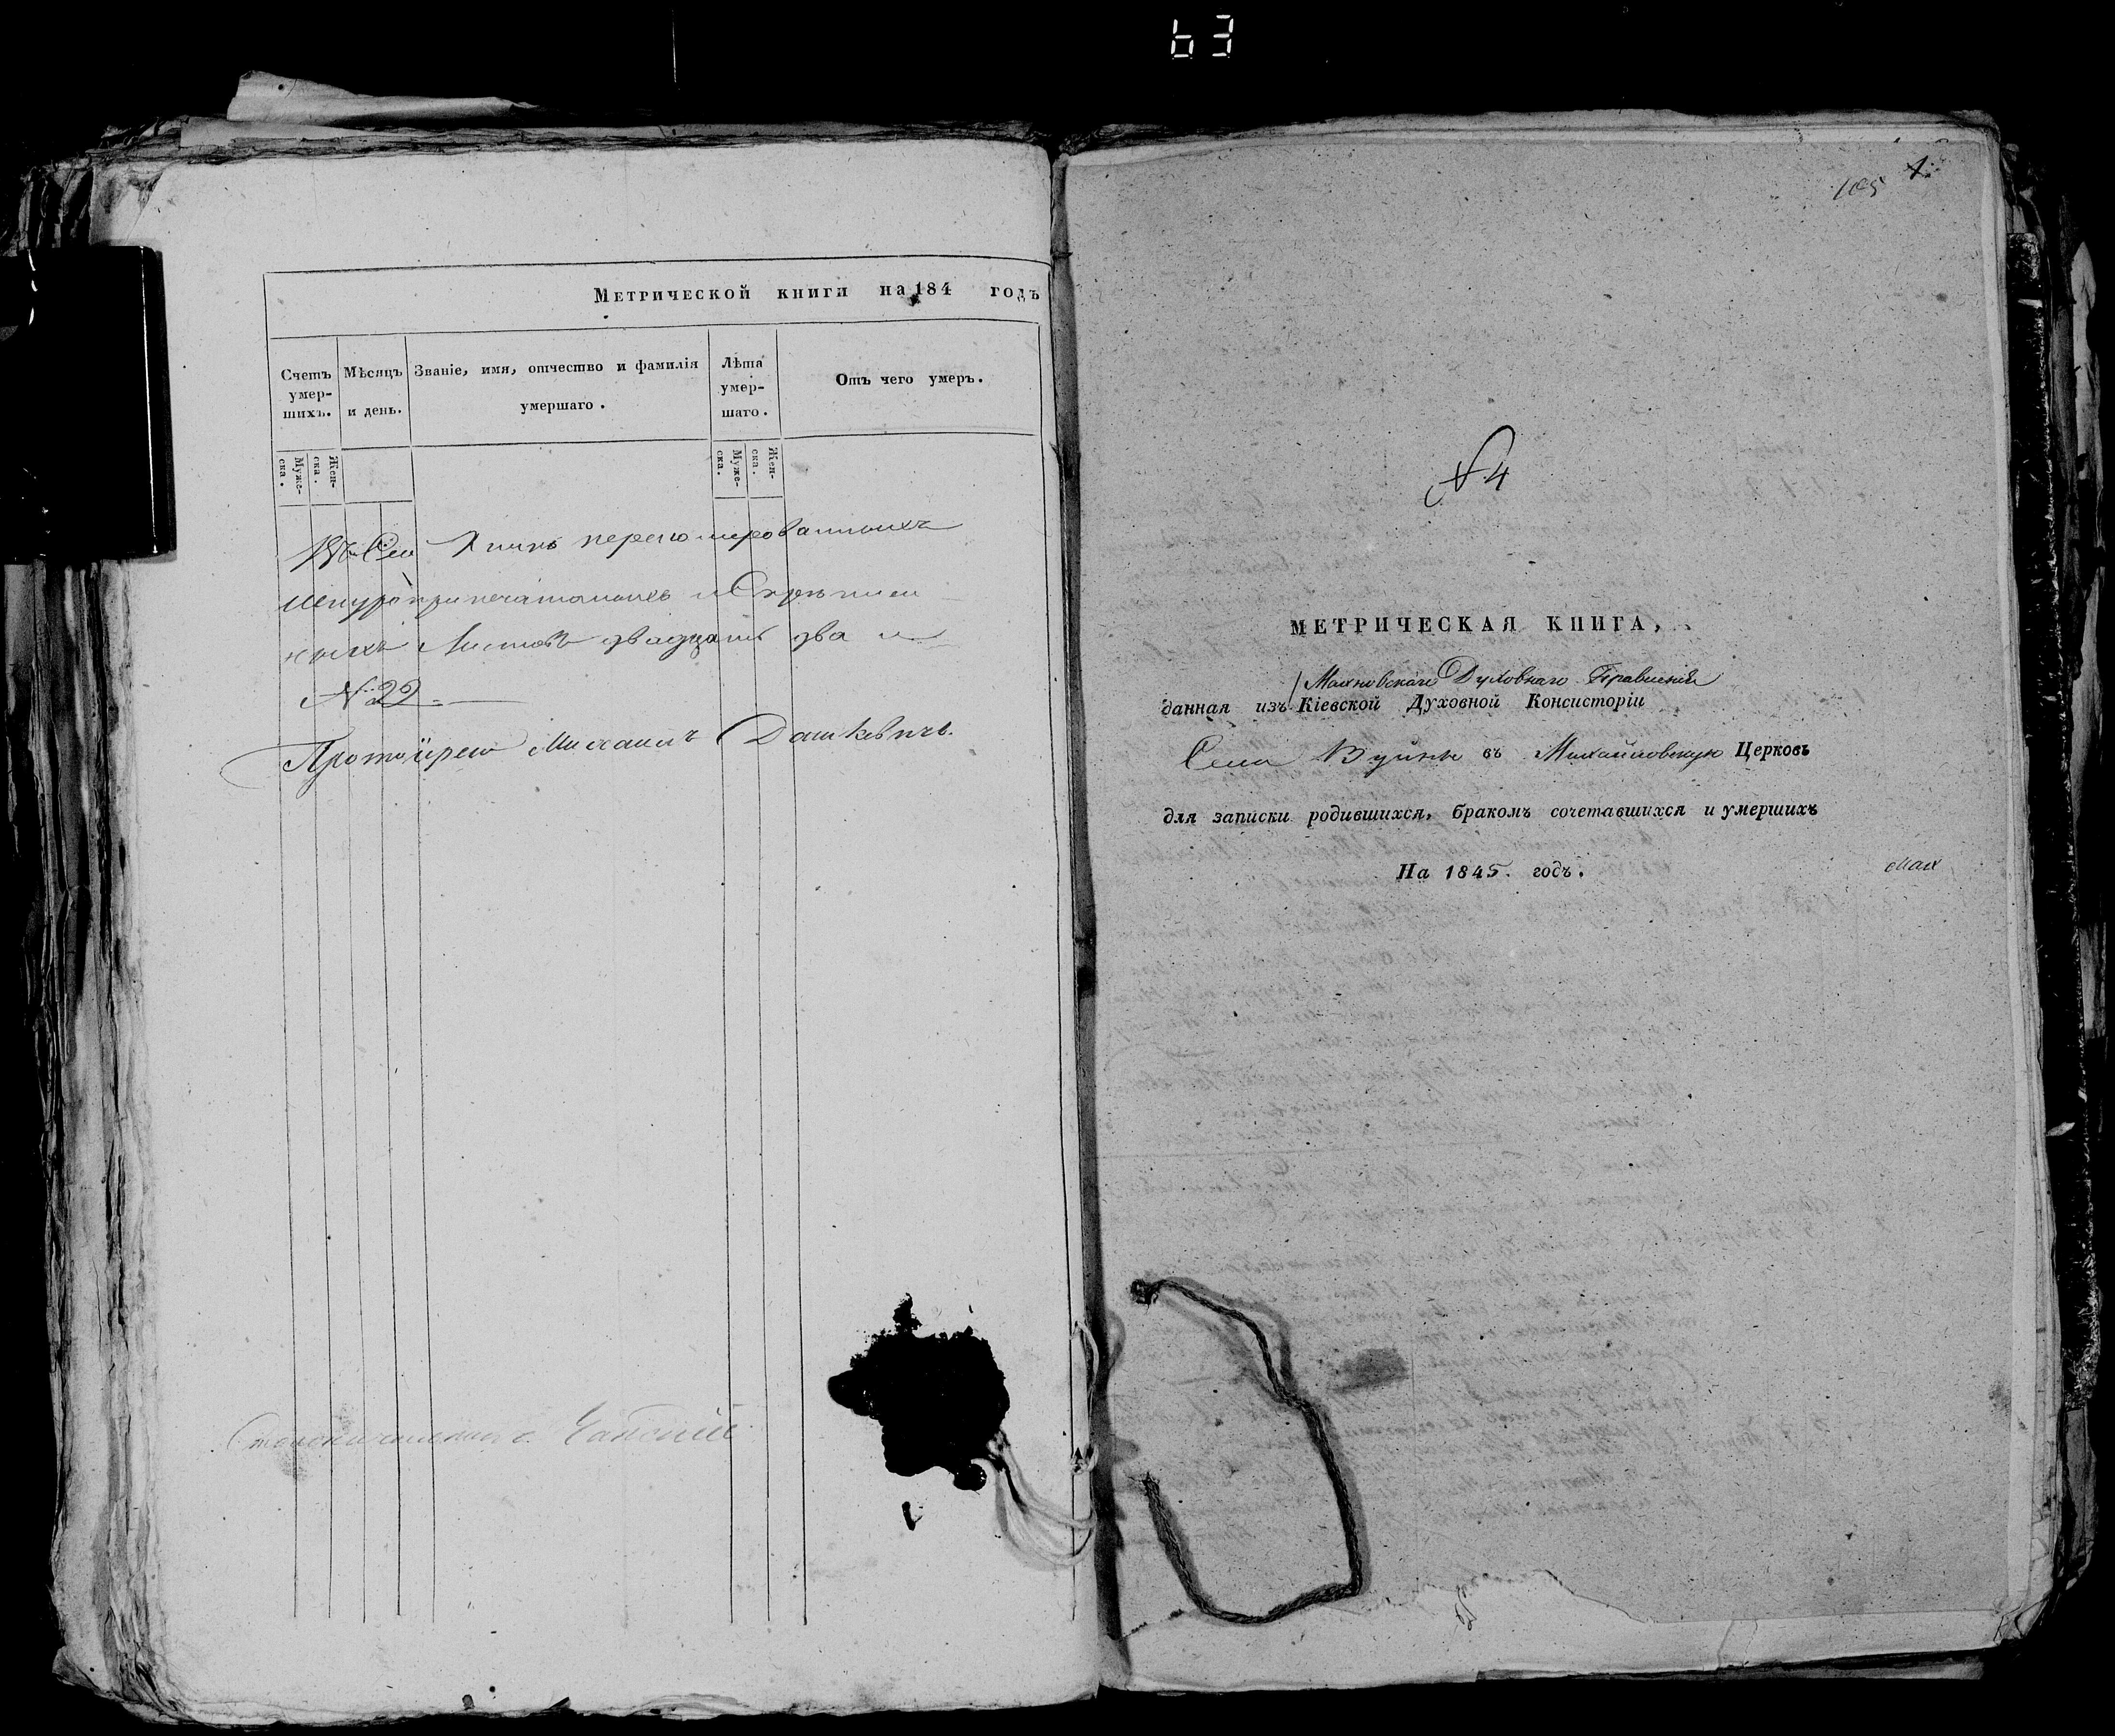 63
Метрической книги на 184 годъ
Счетъ умер-шихъ.
Мѣсяцъ и день.
Званіе, имя, отчество и фамилія умершаго.
Лѣта умер-шаго.
Отъ чего умеръ.
Муже-ска.
Жен-ска.
Муже-ска.
Жен-ска.
Въ сей Книгѣ перенумерованныхъ
шнуроприпечатанныхъ и Скрѣплен
ныхъ Листовъ двадцать два
№ 22
Протоіерей Михаилъ Дашкевичъ.
105
1.
№ 4
МЕТРИЧЕСКАЯ КНИГА,
Махновскаго Духовнаго Правленія
данная изъ Кіевской Духовной Консисторіи
Села Вуйны въ Михайловскую Церковь
для записки родившихся, бракомъ сочетавшихся и умершихъ
На 1845. годъ.
Мах